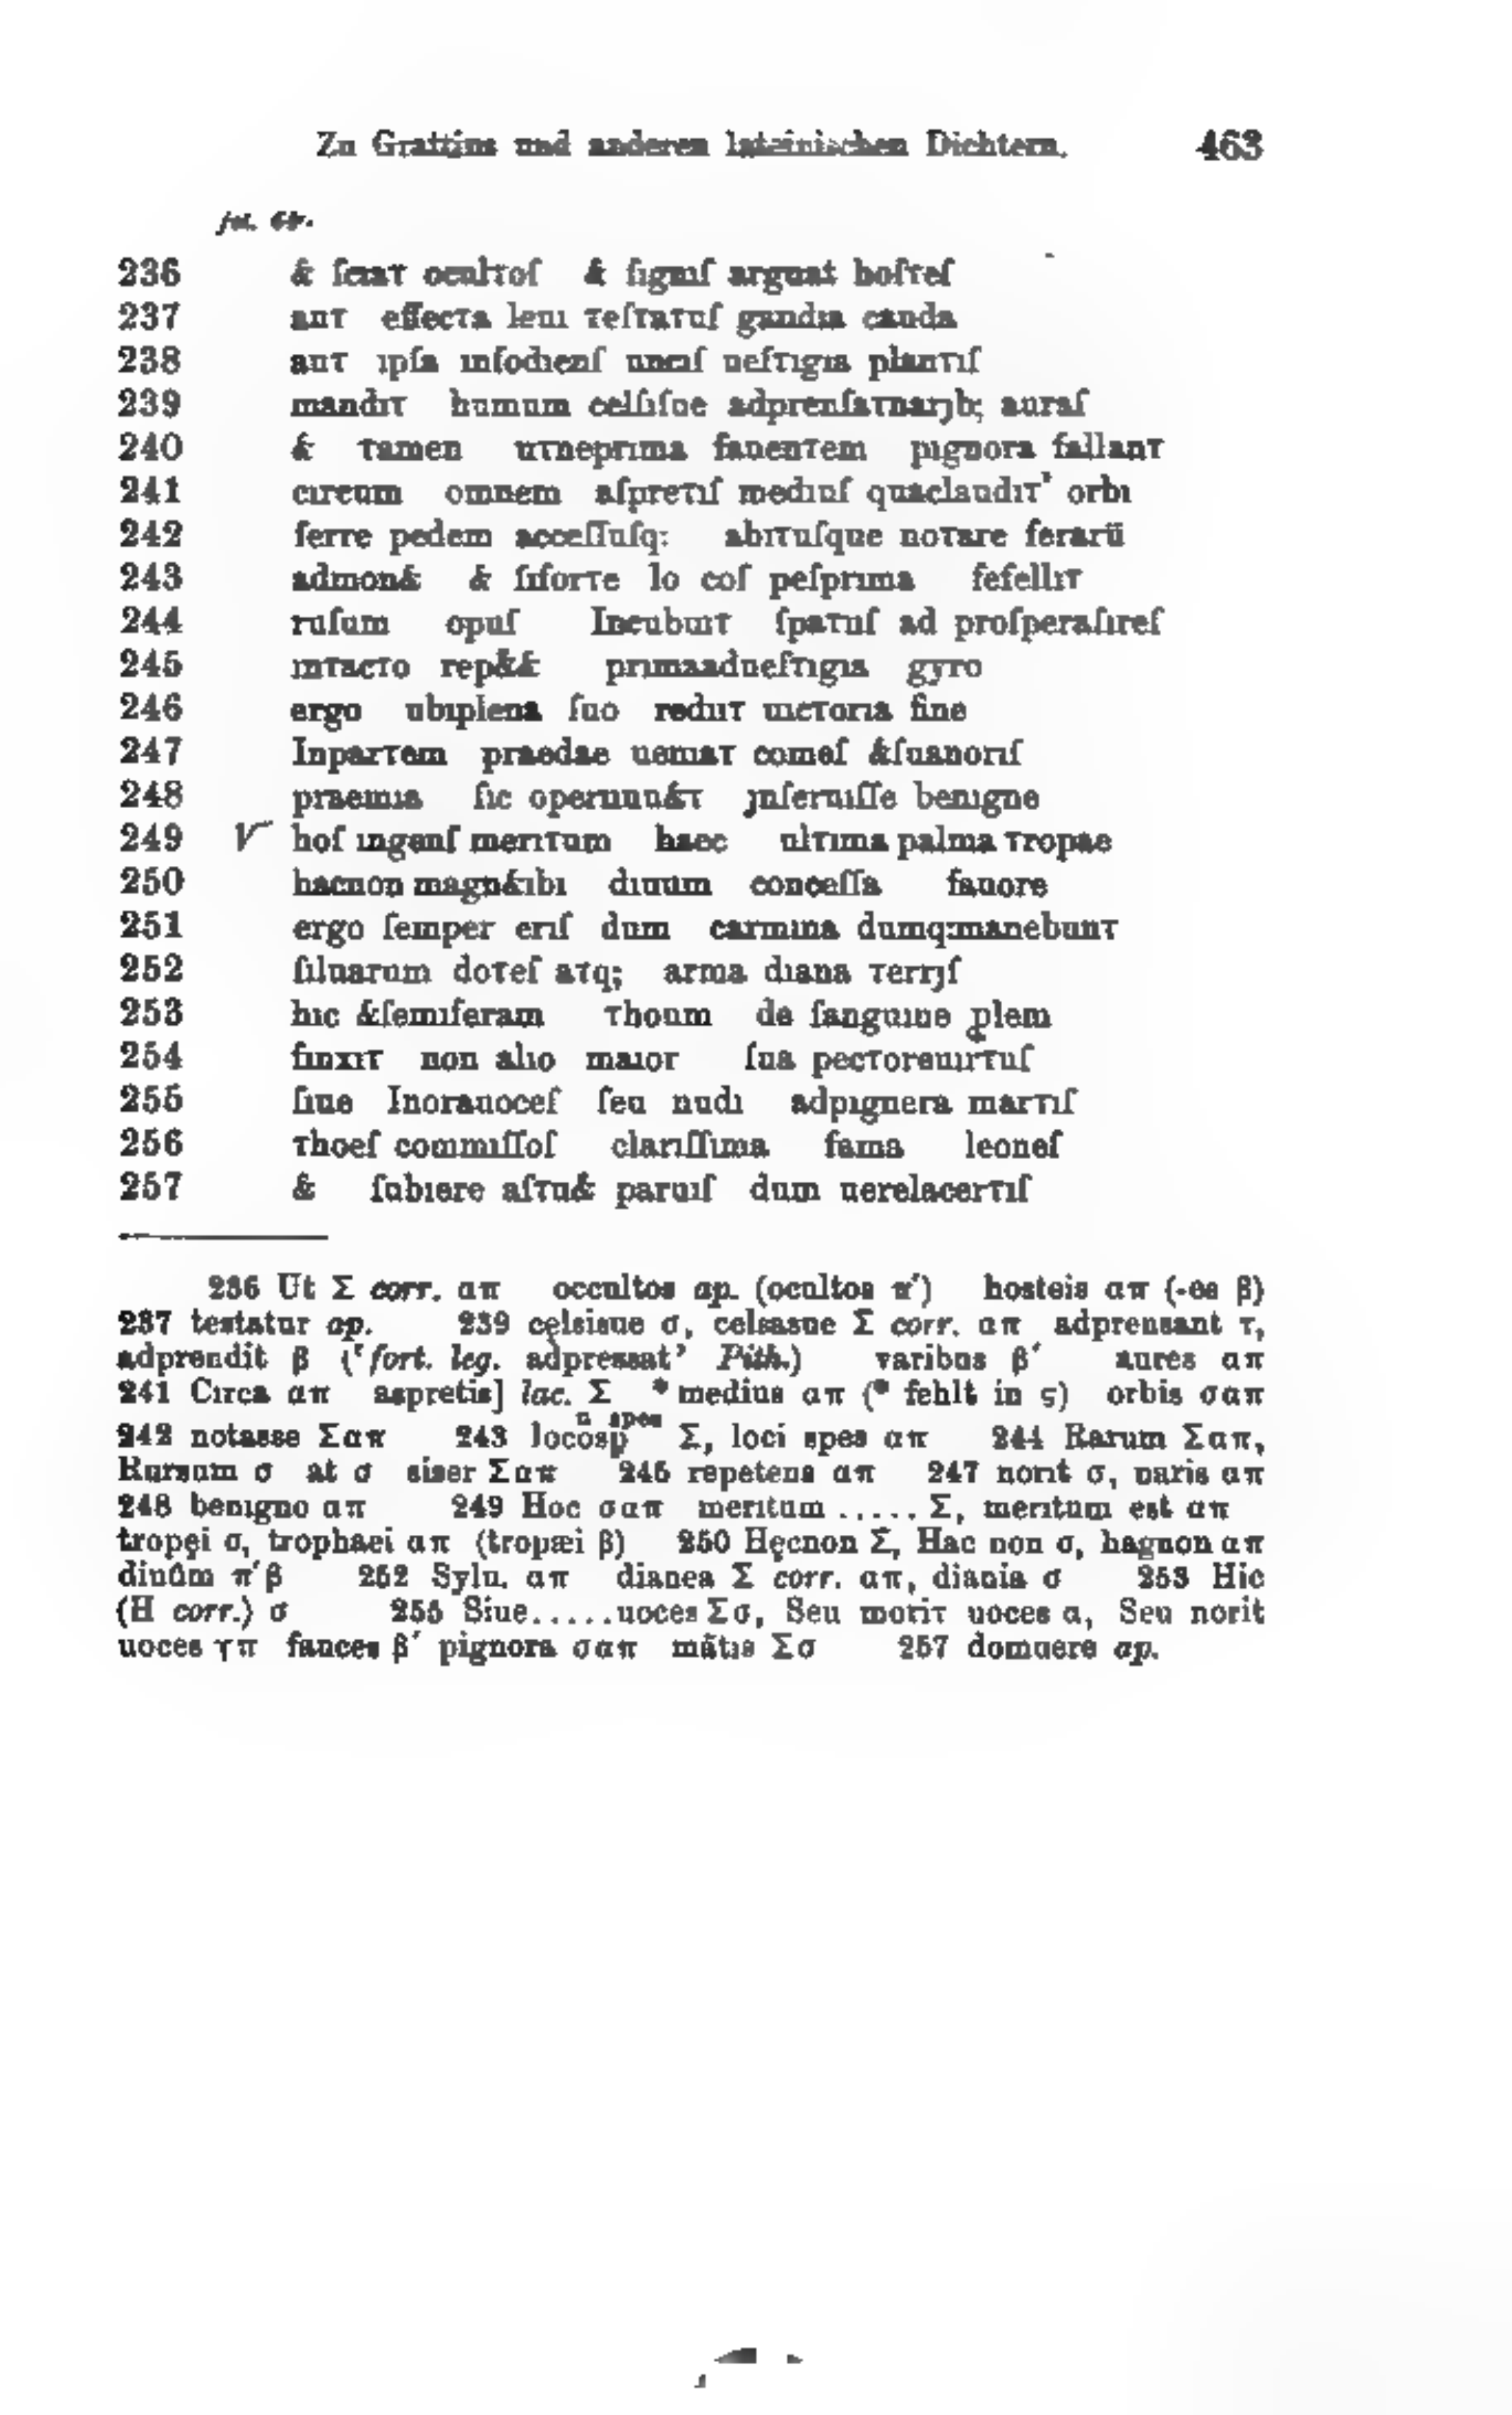 Zu Grattius und anderen lateinischen Dichtern. 463
fol. 6r.
236 & ſcıaт oculтoſ & ſıgnıſ arguat hoſтeſ
237 auт effecтa lenı тeſтaтuſ gaudıa cauda
238 auт ıpſa ınfodıenſ uncıſ ueſтıgıa planтıſ
239 mandıт humum celſıſue adprenſaтnarȷb; auraſ
240 & тamen uтneprıma fauenтem pıgnora fallanт
241 cırcum omnem aſpreтıſ medıuſ quaclaudıт' orbı
242 ferre pedem acceſſuſq: abıтuſque noтare ferarū
243 admon& & ſıforтe lo coſ peſprıma fefellıт
244 ruſum opuſ Incubuıт ſpaтııſ ad proſperaſıreſ
245 ınтacтo rep&& prımaadueſтıgıa gyro
246 ergo ubıplena ſuo redııт uıcтorıa fine
247 Inparтem praedae uenıaт comeſ &ſuanorıſ
248 praemıa ſıc operı ȷnſeruıſſe benıgne
249 V hoſ ıngenſ merıтum haec ulтıma palma тropae
250 hacnon magn&ıbı dıuum conceſſa fauore
251 ergo ſemper erıſ dum carmına dumq:manebunт
252 ſıluarum doтeſ aтq; arma dıana тerrȷſ
253 hıc &ſemıferam тhoum de ſanguıne plem
254 finxıт non alıo maıor ſua pecтoreuırтuſ
255 ſıue Inorauoceſ ſeu nudı adpıgnera marтıſ
256 тhoeſ commıſſoſ clarıſſıma fama leoneſ
257 & ſubıere aſтu& paruıſ dum uerelacerтıſ
236 Ut Σ corr. απ occultos ap. (ocultos π′) hosteis απ (-es β)
237 testatur ap. 239 cęlsisue σ, celsasue Σ corr. απ adprensant τ,
adprendit β ('fort. leg. adpressat' Pith.) varibus β′ aures απ
241 Cırca απ aspretis] lac. Σ * medius απ (* fehlt in ς) orbis σαπ
242 notasse Σαπ 243 locosp Σ, loci spes απ 244 Rarum Σαπ,
Rursum σ at σ siser Σαπ 245 repetens απ 247 norıt σ, naris απ
248 benigno απ 249 Hoc σαπ merıtum ..... Σ, merıtum est απ
tropęi σ, trophaei απ (tropæi β) 250 Hęcnon Σ, Hac non σ, hagnon απ
diuûm π′β 252 Sylu. απ dianea Σ corr. απ, dianis σ 253 Hic
(H corr.) σ 255 Siue.....uoces Σσ, Seu moriт uoces α, Seu norit
uoces γπ fauces β′ pignora σαπ mátıs Σσ 257 domuere ap.